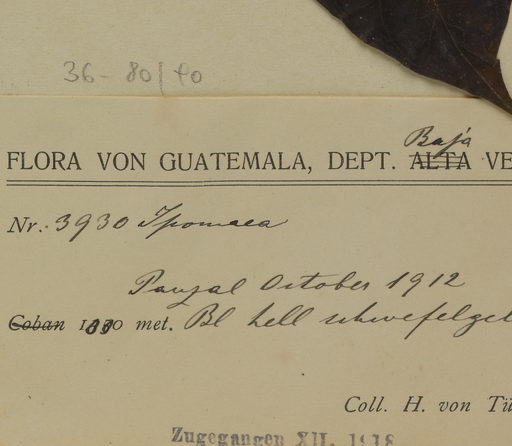 36-80/90
Baja
FLORA VON GUATEMALA, DEPT. ALTA VE
Nr. 3930 Ipomaea
Panzal October 1912
Coban met. Bl hell schwefelgel
Coll. H. von Tü
Zugegangen XII. 1918